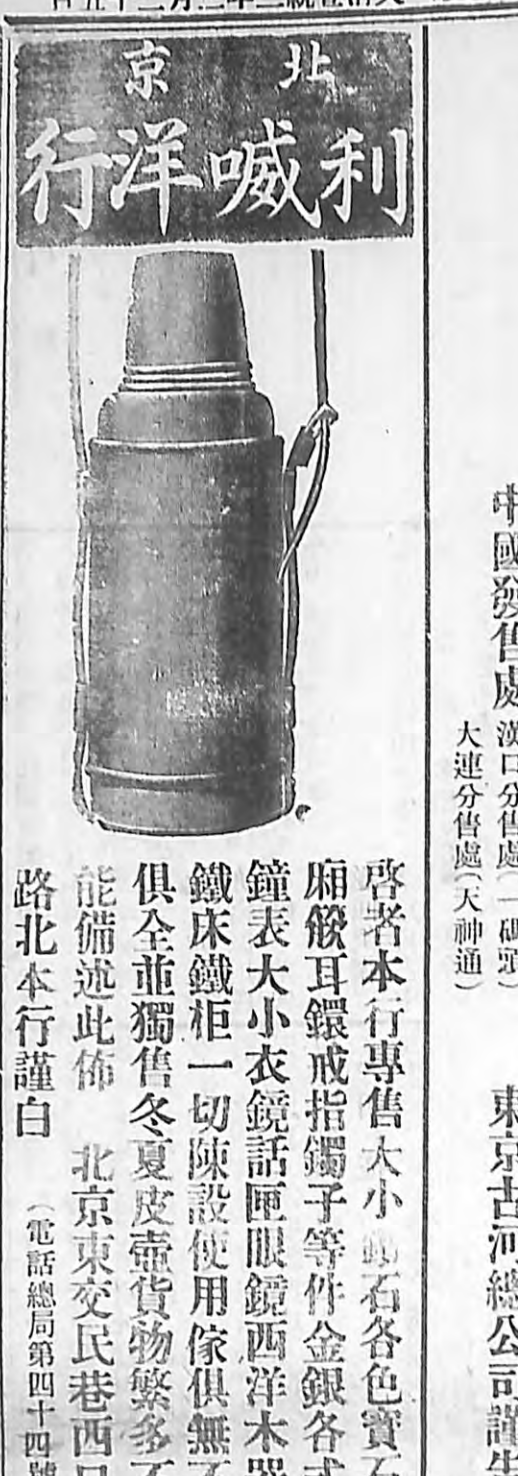 北京
利喊洋行
啓者本行專售大小石各色寶石
廂餀耳鐶戒指鐲子等件金銀各式
鐘表大小衣鏡話匣眼鏡西洋木器
鐵床鐵柜一切陳設使用傢俱無不
俱全並獨售冬夏皮壺貨物繁多不
能備述此佈　北京東交民巷西口
路北本行謹白（電話總局第四十四號
中國發售處
漢口分售處（一碼頭）
大連分售處（天神通）
東京古河總公司謹告